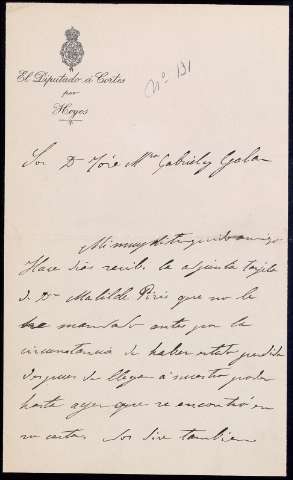 El Diputado á Cortes
por
Hoyos
Nº 131
Sor Dn José Mª Gabriel y Galan
Mi muy distinguido amigo
Hace dias recibi la adjunta tarjeta
de Dª Matilde que no le
he mandado antes por la
circunstancia de haber estado perdida
despues de llegar á nuestro poder
hasta ayer que se encontró en
carta. Nos dice tambien